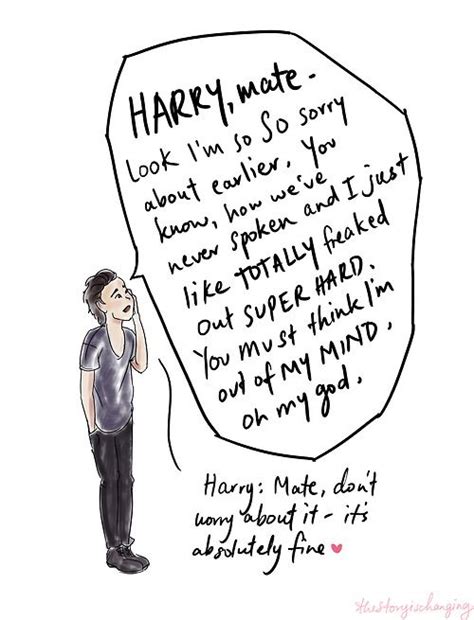 HARRY, mate -
Look I'm so SO sorry
about earlier. You
know, how we've
never spoken and I just
like TOTALLY freaked
out SUPER HARD.
You must think I'm
out of MY MIND.
oh my god.
Harry: Mate, don't
worry about it - it's
absolutely fine ♥
thestoryischanging